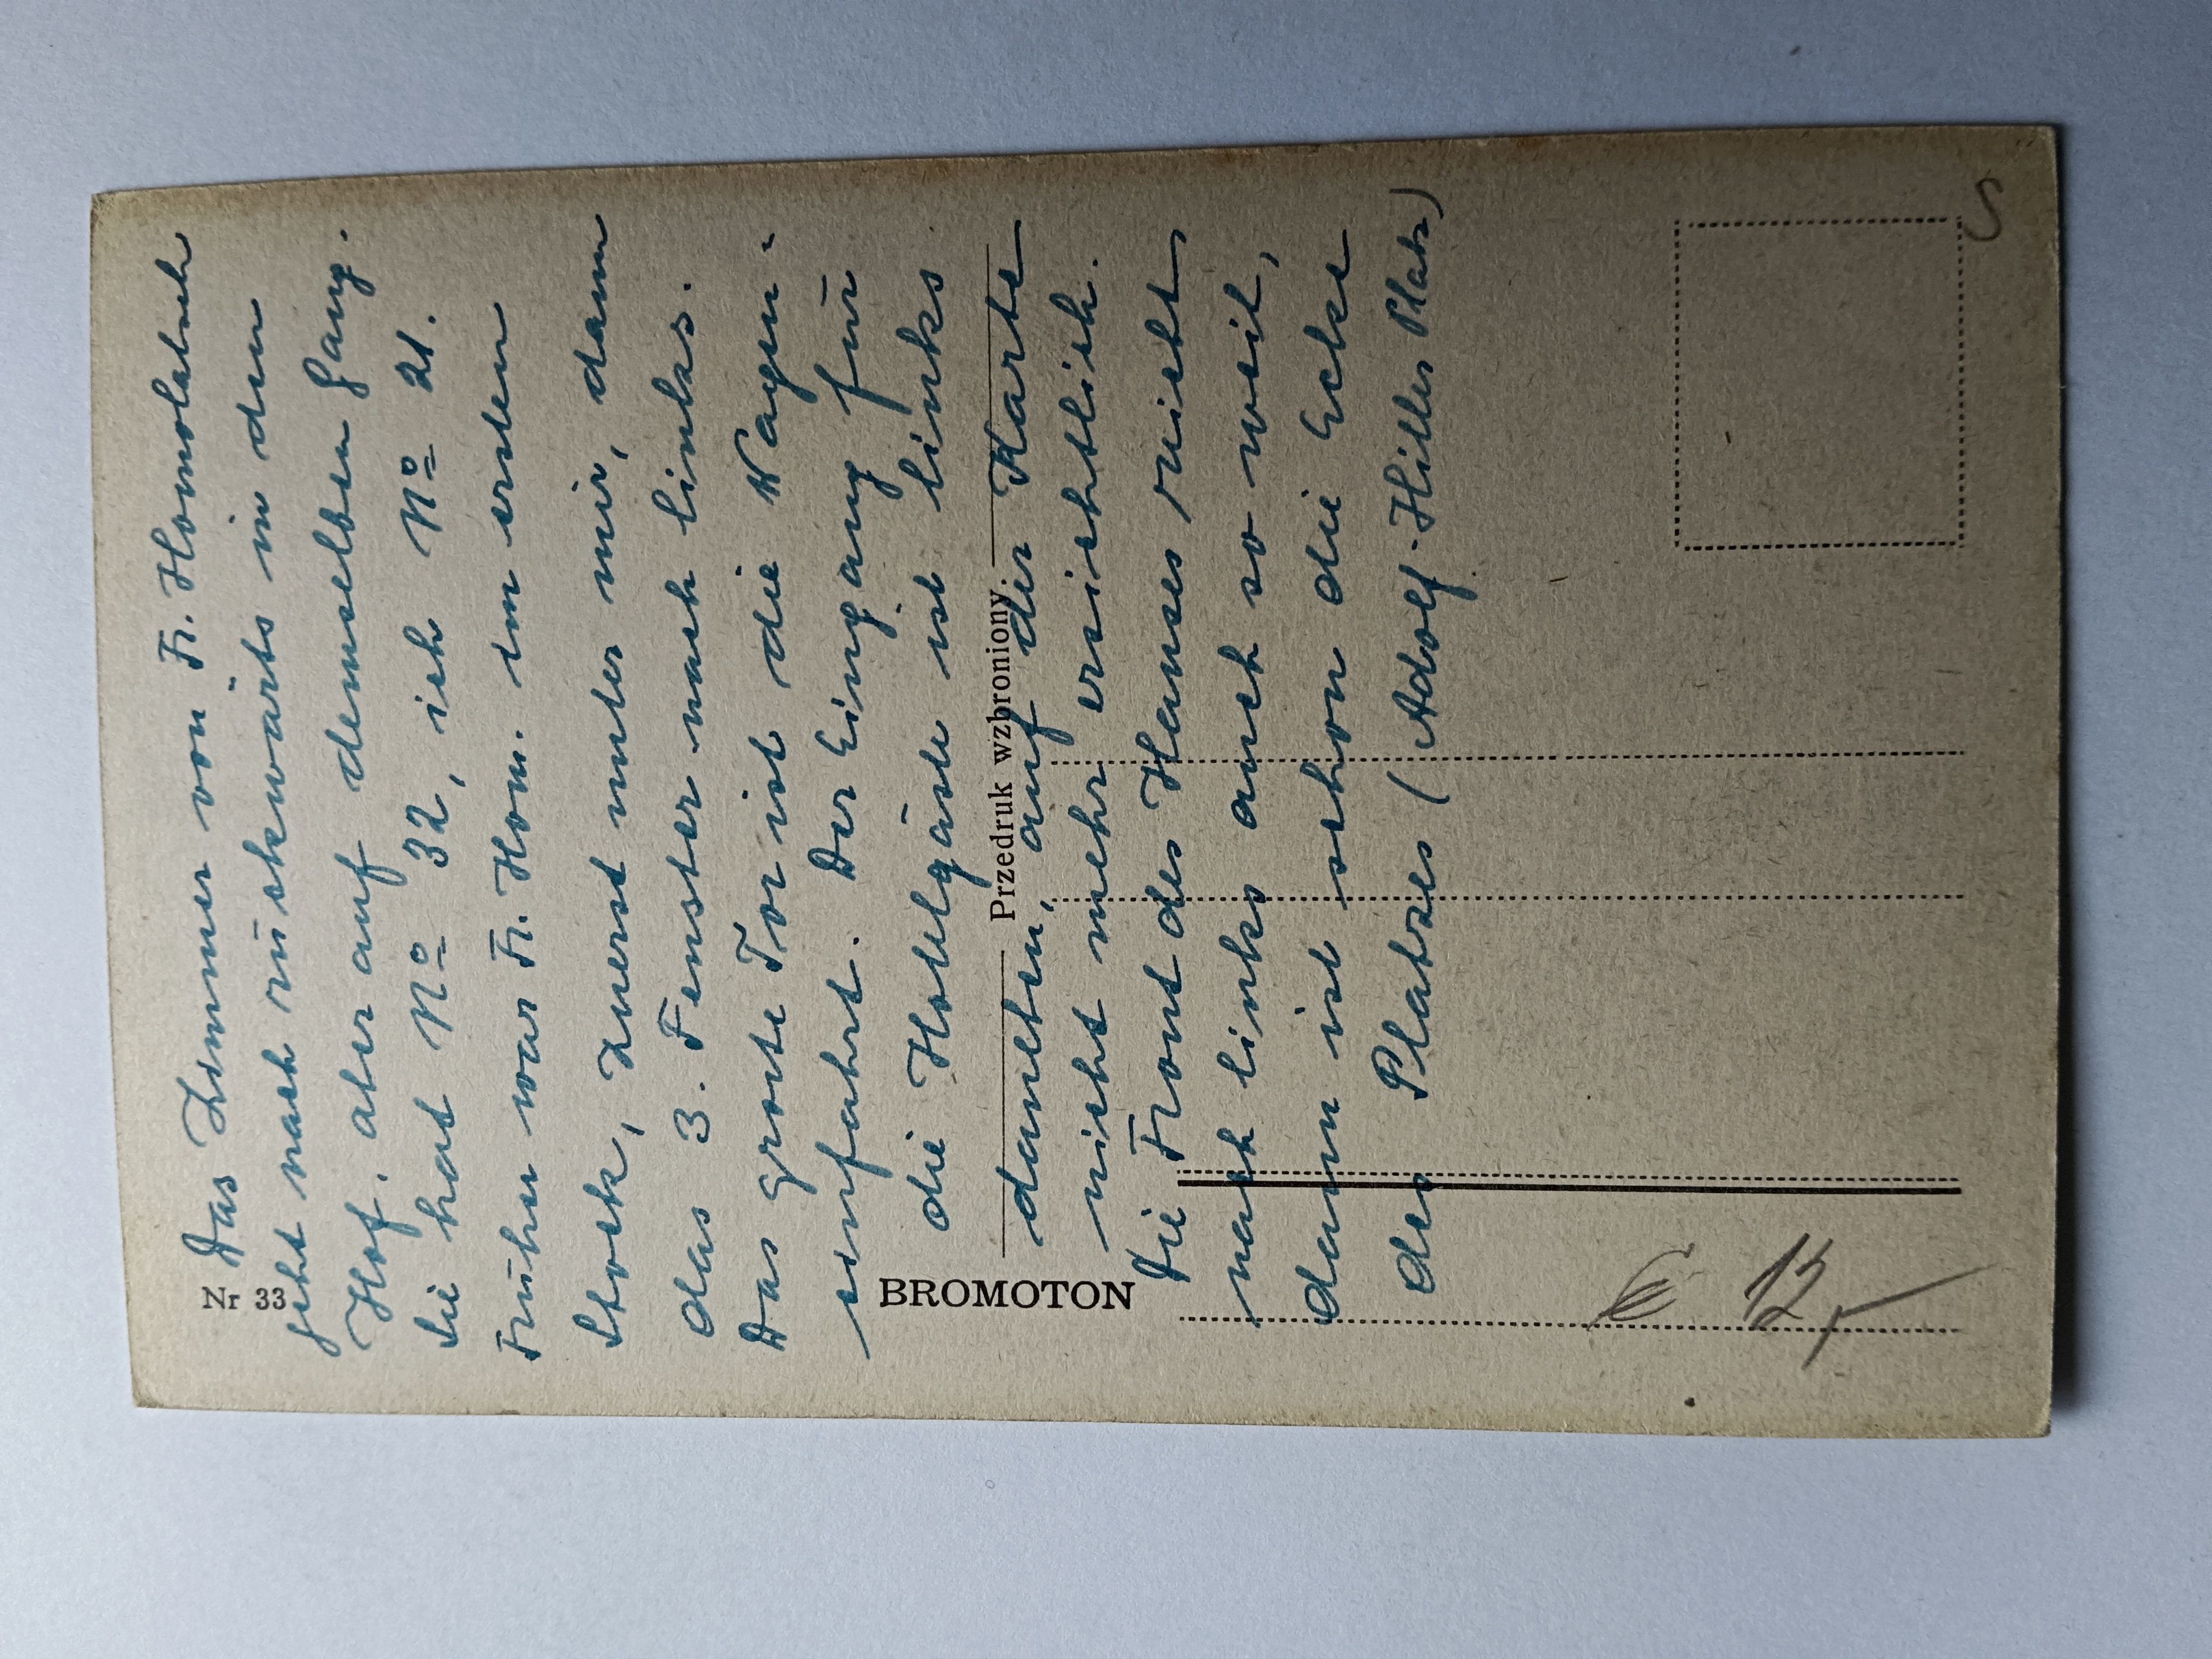 Nr 33
Das Zimmer von Fr. Homolatsch
geht nach rückwärts in den
Hof, aber auf demselben Gang.
Sie hat No 32, ich No 21.
Früher war Fr. Hom. im ersten
Stock, zuerst unter mir, dann
das 3. Fenster nach links.
Das grosse Tor ist die Wagen-
einfahrt. Der Eingang für
die Hotelgäste ist links
daneben, auf der Karte
nicht mehr ersichtlich.
Die Front des Hauses reicht
nach links auch so weit,
dann ist schon die Ecke
des Platzes (Adolf-Hitler Platz)
BROMOTON
Przedruk wzbroniony.
€ 12,-